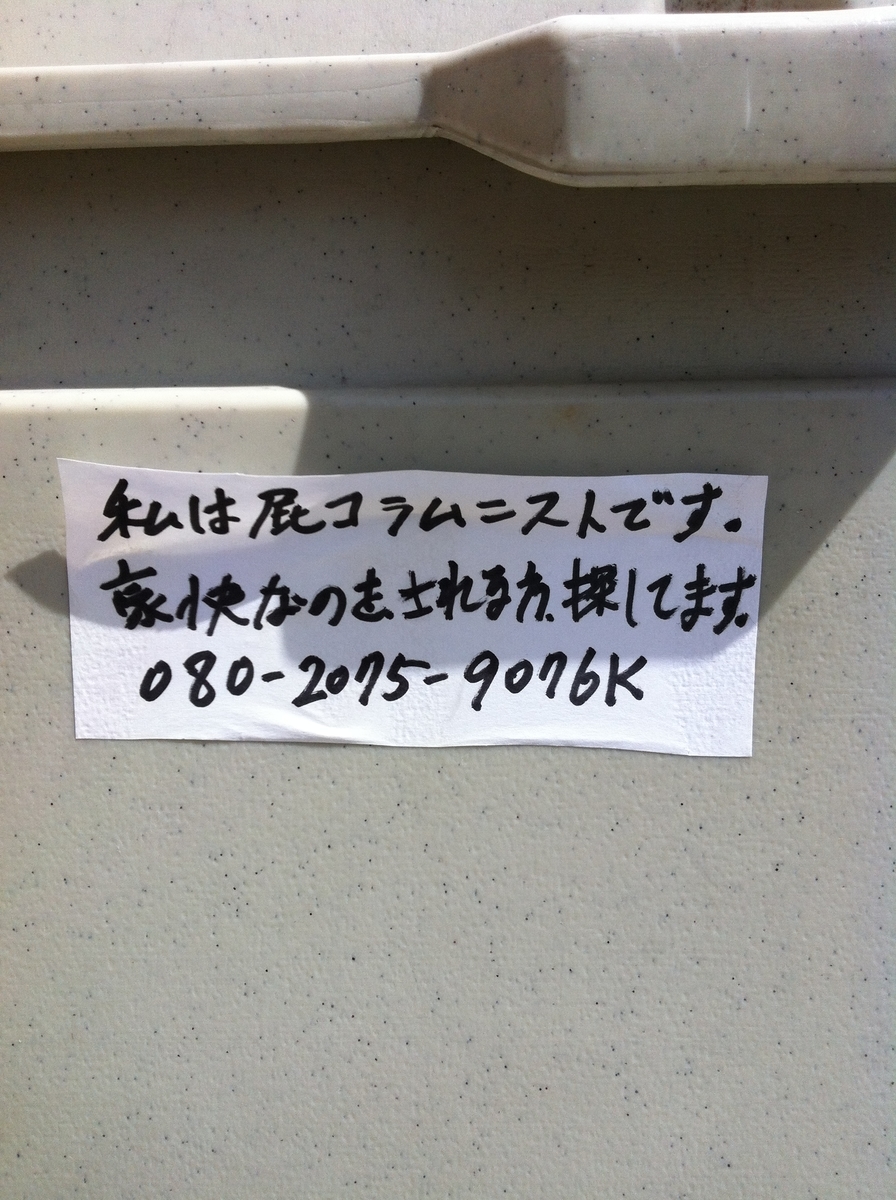 私は屁コラムニストです。
豪快なのをされる方、探してます。
080-2075-9076K